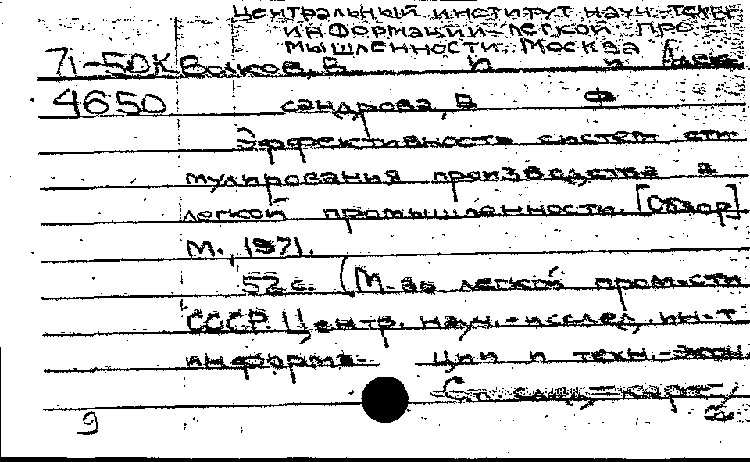 Центральный институт науч.-техн.
информации легкой про-
мышленности. Москва
71-50К Волков, В. И. и Алек
4650 сандрова, В Ф
Эффективность систем сти-
мулирования производства в
легкой промышленности. [Обзор]
М., 1971.
52 с. (М-во легкой пром-сти
СССР. Центр. науч.-исслед. ин-т
информа- ции и техн.-экон.
9